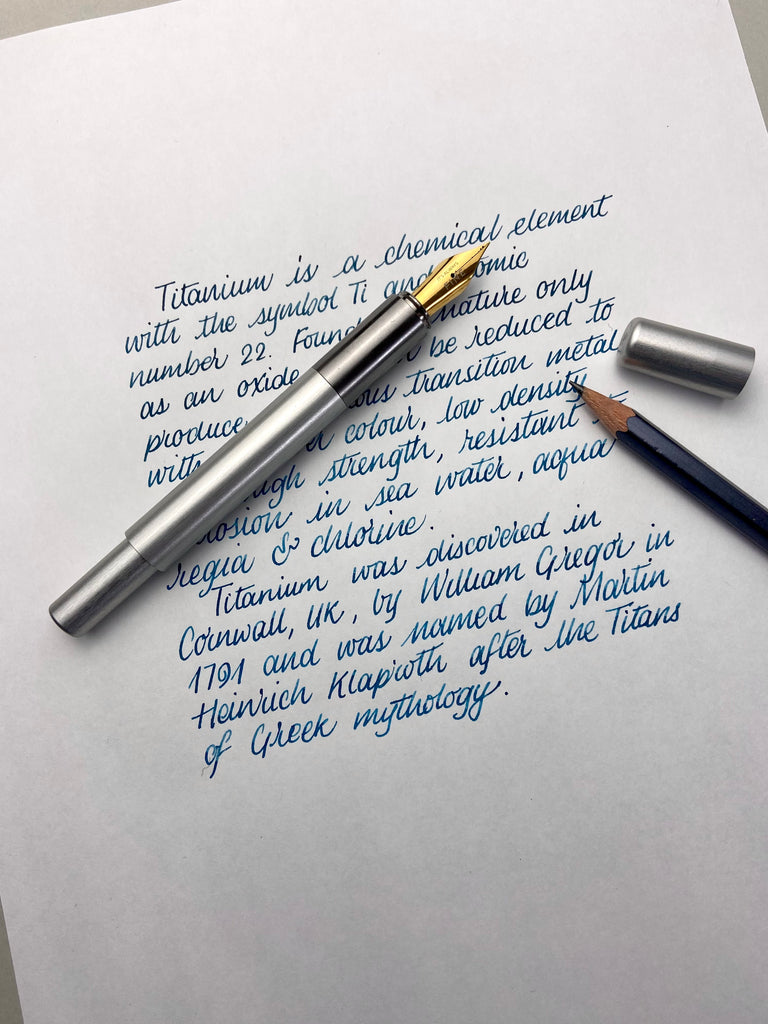 Titanium is a chemical element
with the symbol Ti and omic
number 22. Found nature only
as an oxide be reduced to
produce ous transition metal
with colour, low density
high strength, resistant
rosion in sea water, aqua
regia & chlorine.
Titanium was discovered in
Cornwall, UK, by William Gregor in
1791 and was named by Martin
Heinrich Klaproth after the Titans
of Greek mythology.